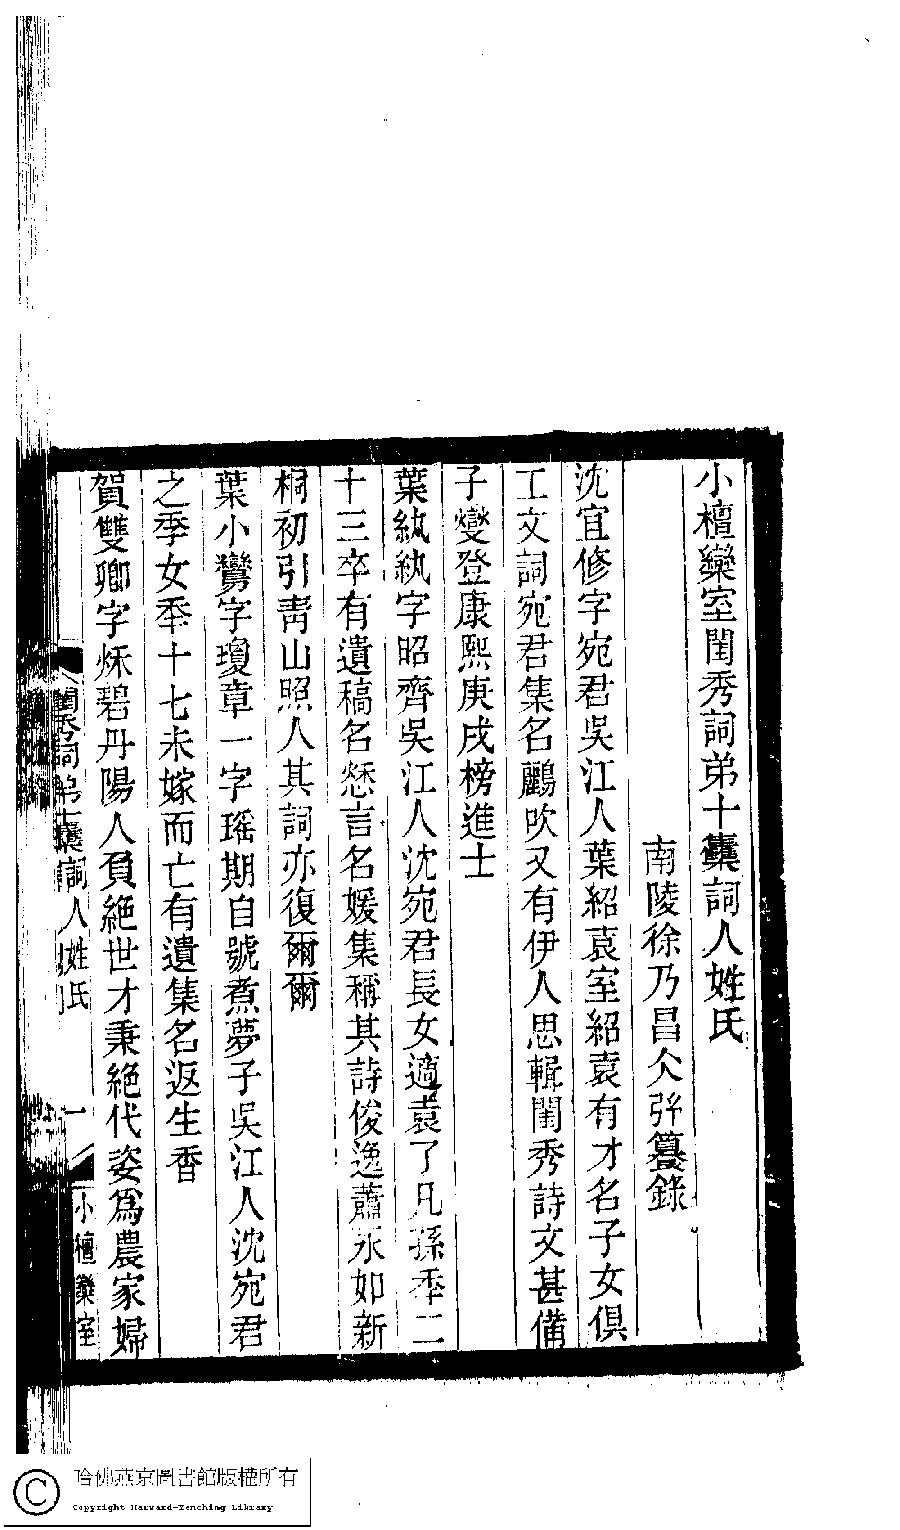 小檀欒室閨秀詞弟十集詞人姓氏
南陵徐乃昌仌弜籑錄
沈宜修字宛君吳江人葉紹袁室紹袁有才名子女俱
工文詞宛君集名鸝吹又有伊人思輯閨秀詩文甚備
子燮登康熙庚戌榜進士
葉紈紈字昭齊吳江人沈宛君長女適袁了凡孫秊二
十三卒有遺稿名愁言名媛集稱其詩俊逸蕭永如新
桐初引青山照人其詞亦復爾爾
葉小鸞字瓊章一字瑤期自號煮夢子吳江人沈宛君
之季女秊十七未嫁而亡有遺集名返生香
賀雙卿字秌碧丹陽人負絕世才秉絕代姿爲農家婦
閨秀詞弟十集詞人姓氏
一
小檀欒室
哈佛燕京圖書館版權所有
Copyright Harvard-Yenching Library